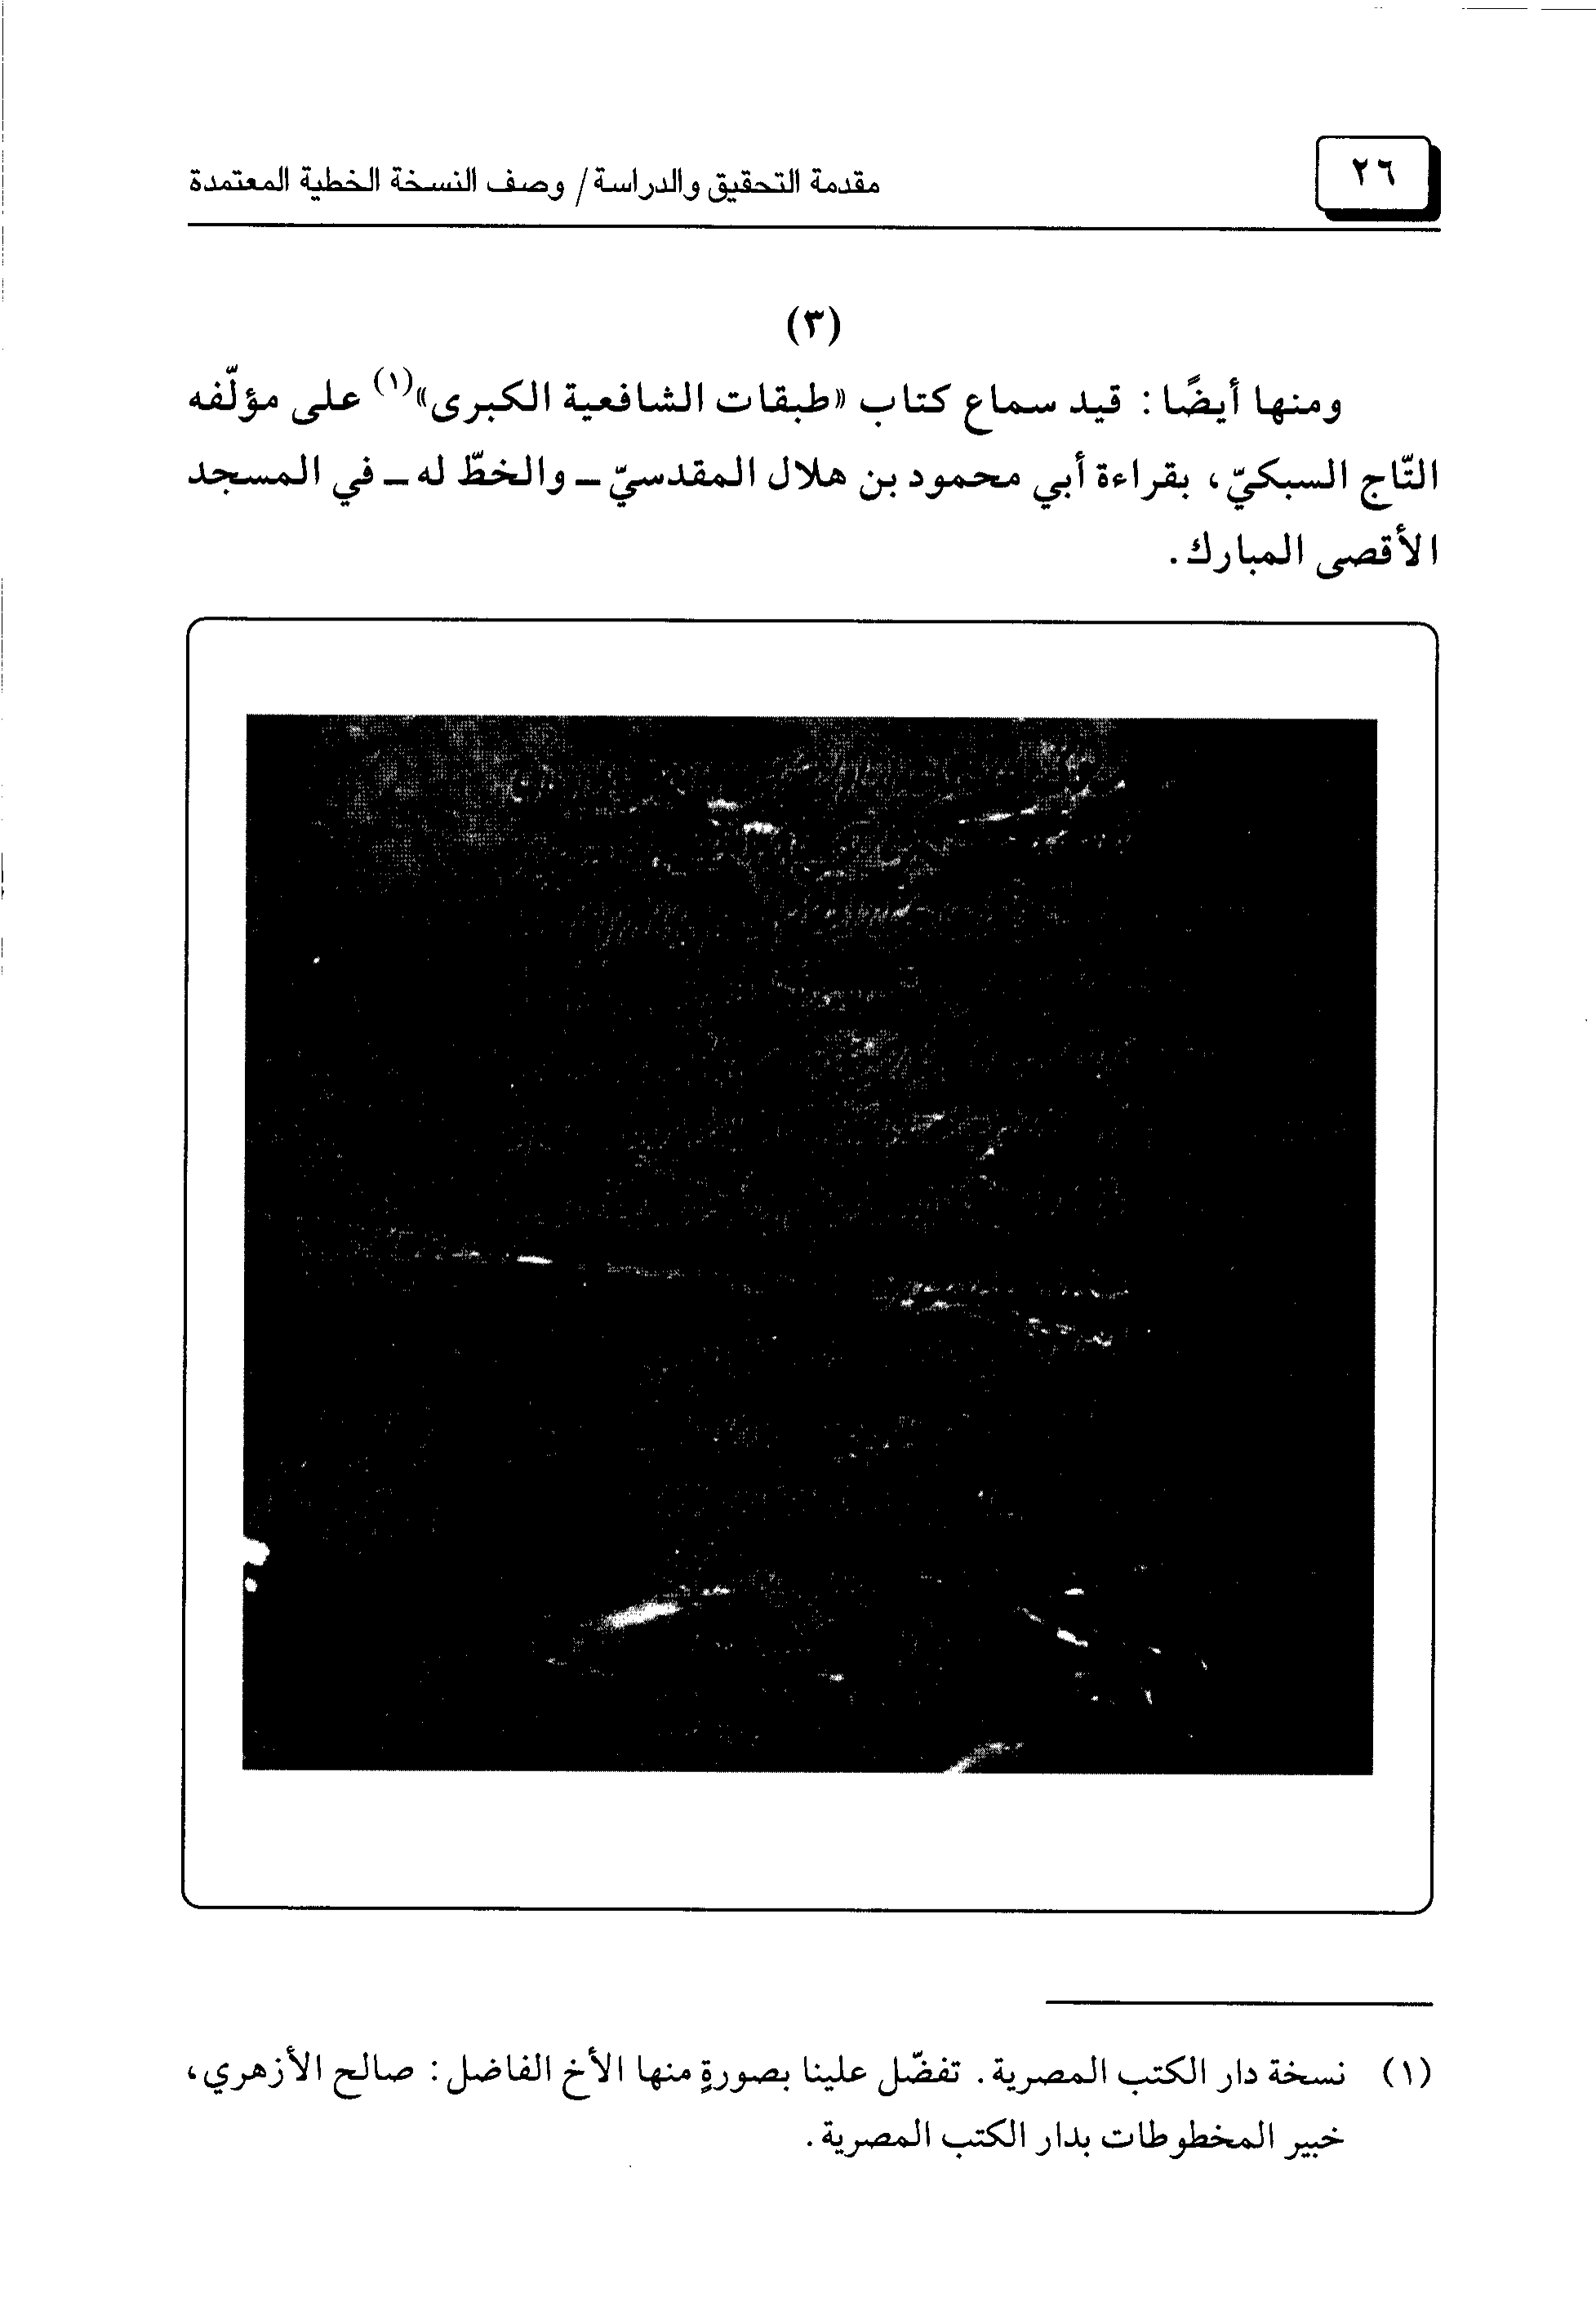 ٢٦
مقدمة التحقيق والدراسة / وصف النسخة الخطية المعتمدة
(٣)
ومنها أيضًا : قيد سماع كتاب «طبقات الشافعية الكبرى»(١) على مؤلّفه
التّاج السبكيّ، بقراءة أبي محمود بن هلال المقدسيّ - والخطّ له - في المسجد
الأقصى المبارك .
(١) نسخة دار الكتب المصرية . تفضّل علينا بصورةٍ منها الأخ الفاضل : صالح الأزهري،
خبير المخطوطات بدار الكتب المصرية .